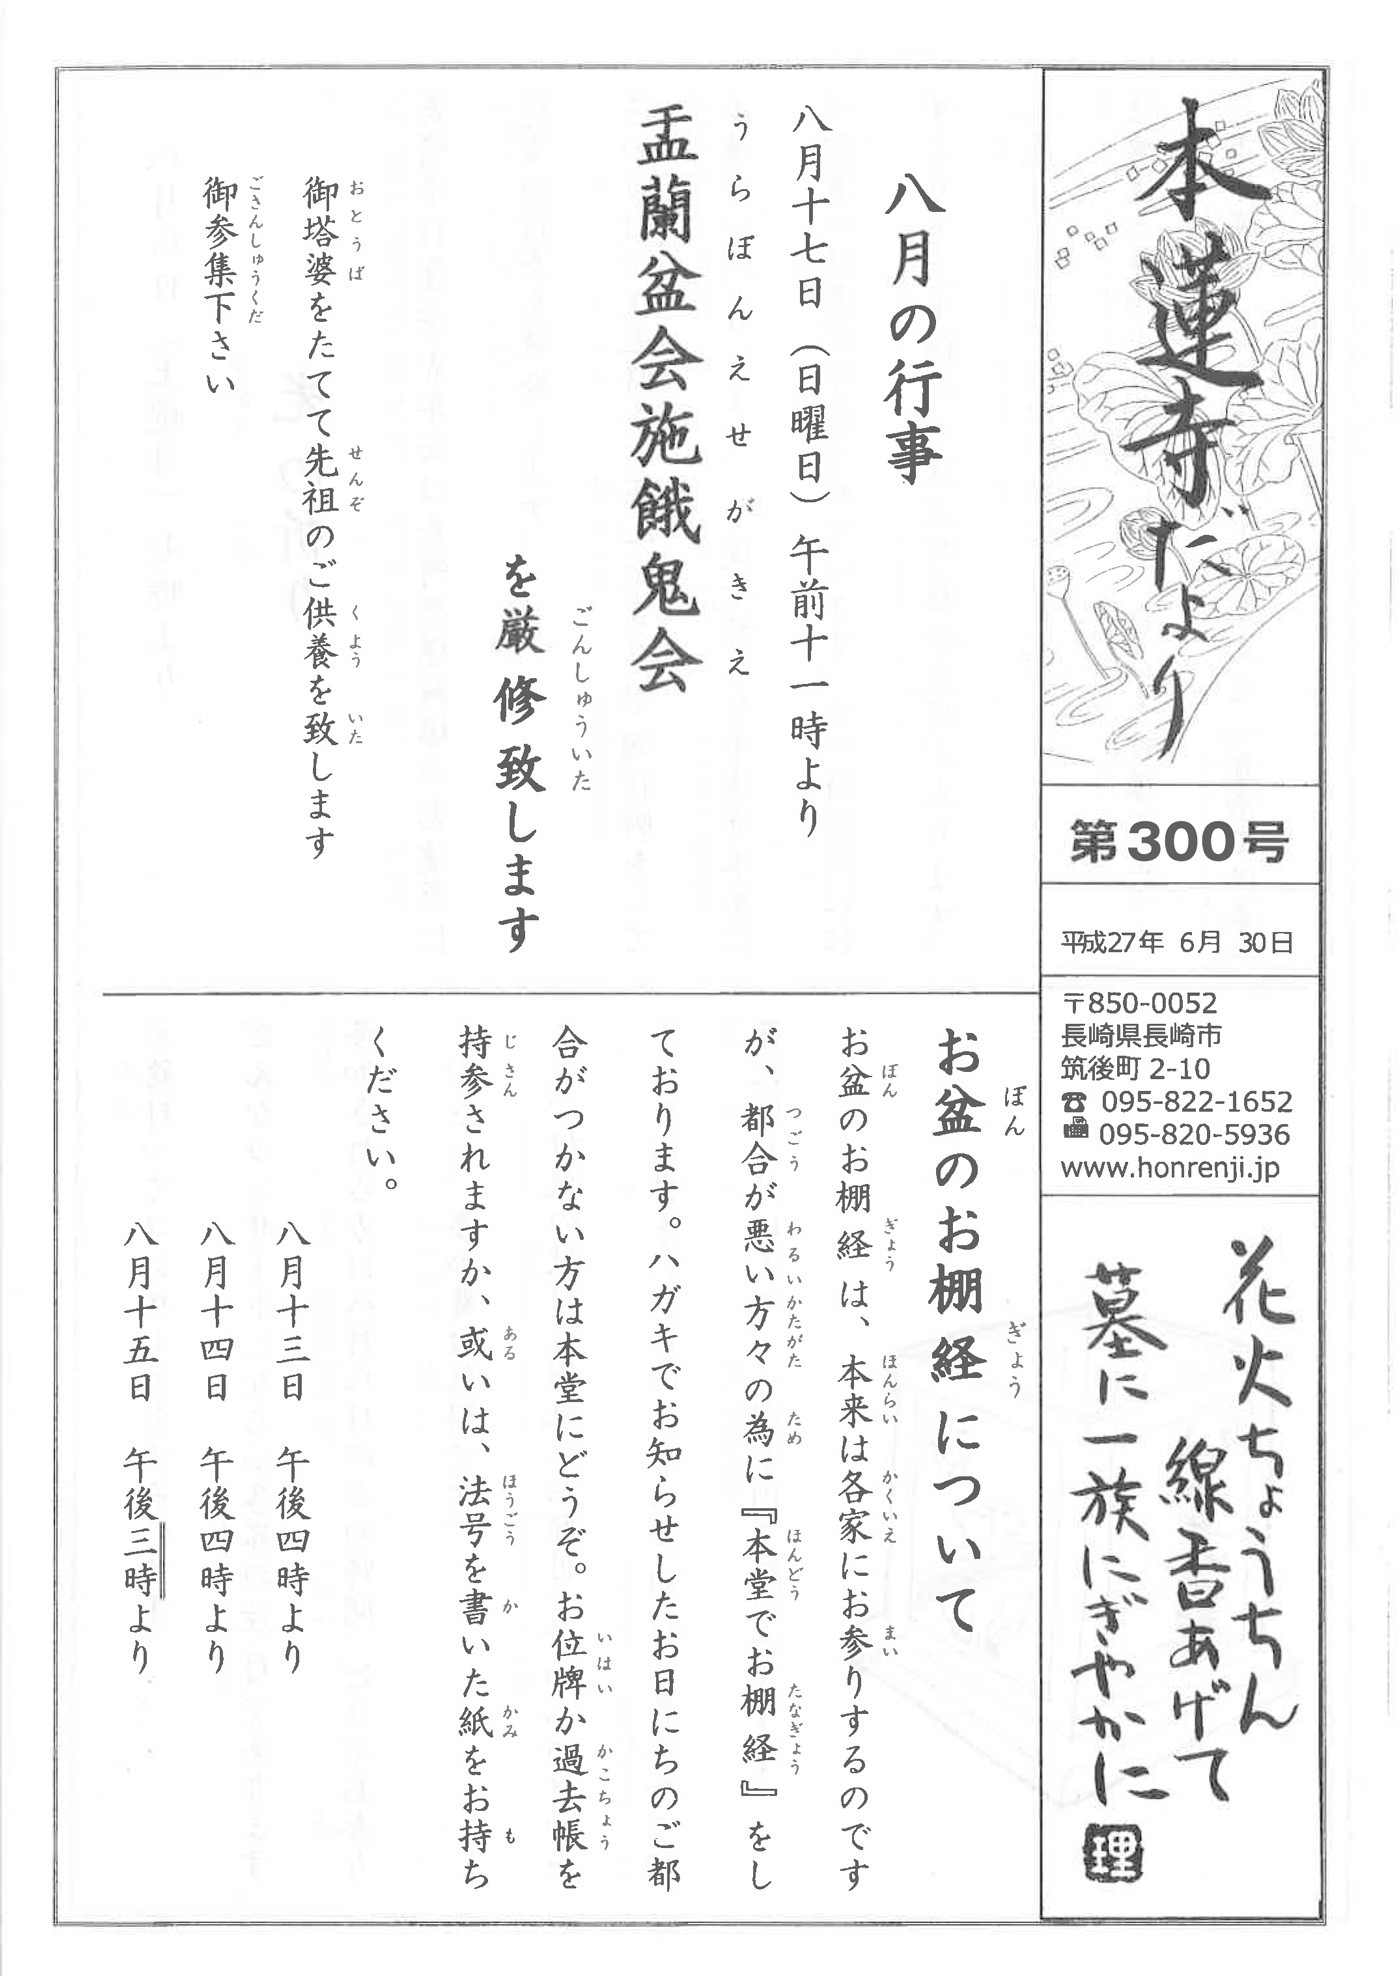 本蓮寺だより
第300号
平成27年 6月 30日
〒850-0052
長崎県長崎市
筑後町 2-10
☎ 095-822-1652
📠 095-820-5936
www.honrenji.jp
花火ちょうちん
線香あげて
墓に一族にぎやかに
理
八月の行事
八月十七日（日曜日）午前十一時より
うらぼんえせがきえ
盂蘭盆会施餓鬼会
ごんしゅういた
を厳修致します
おとうば せんぞ くよう いた
御塔婆をたてて先祖のご供養を致します
ごさんしゅうくだ
御参集下さい
ぼん ぎょう
お盆のお棚経について
ぼん ぎょう ほんらい かくいえ まい
お盆のお棚経は、本来は各家にお参りするのです
つごう わるいかたがた ため ほんどう たなぎょう
が、都合が悪い方々の為に『本堂でお棚経』をし
ております。ハガキでお知らせしたお日にちのご都
いはい かこちょう
合がつかない方は本堂にどうぞ。お位牌か過去帳を
じさん ある ほうごう か かみ も
持参されますか、或いは、法号を書いた紙をお持ち
ください。
八月十三日 午後四時より
八月十四日 午後四時より
八月十五日 午後三時より